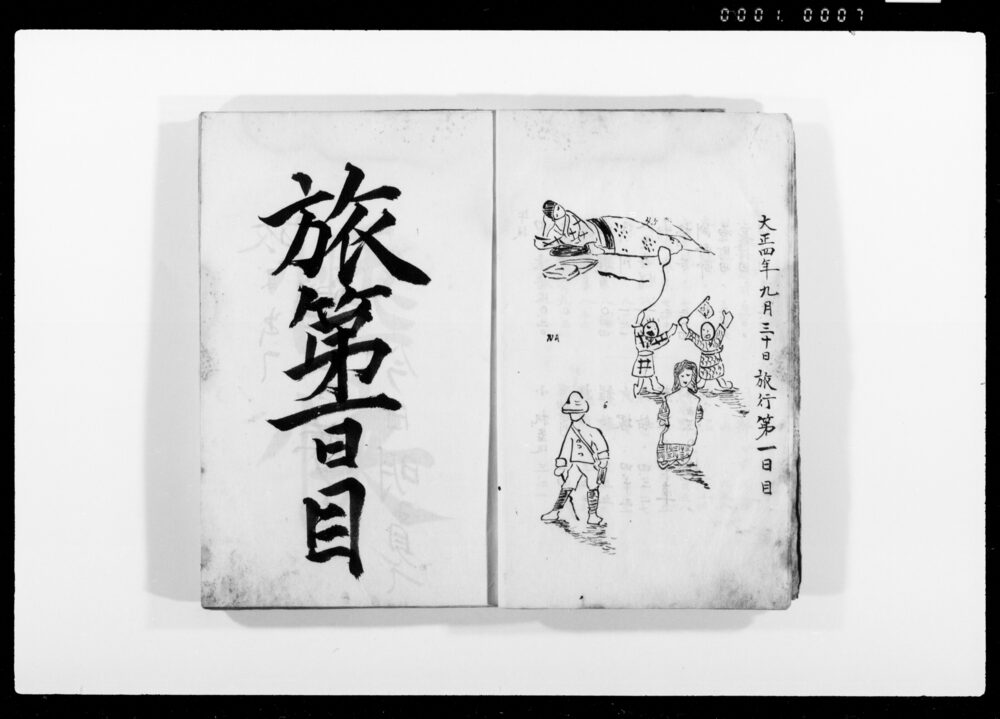 0001. 0007
大正四年九月三十日旅行第一日目
旅第一日目